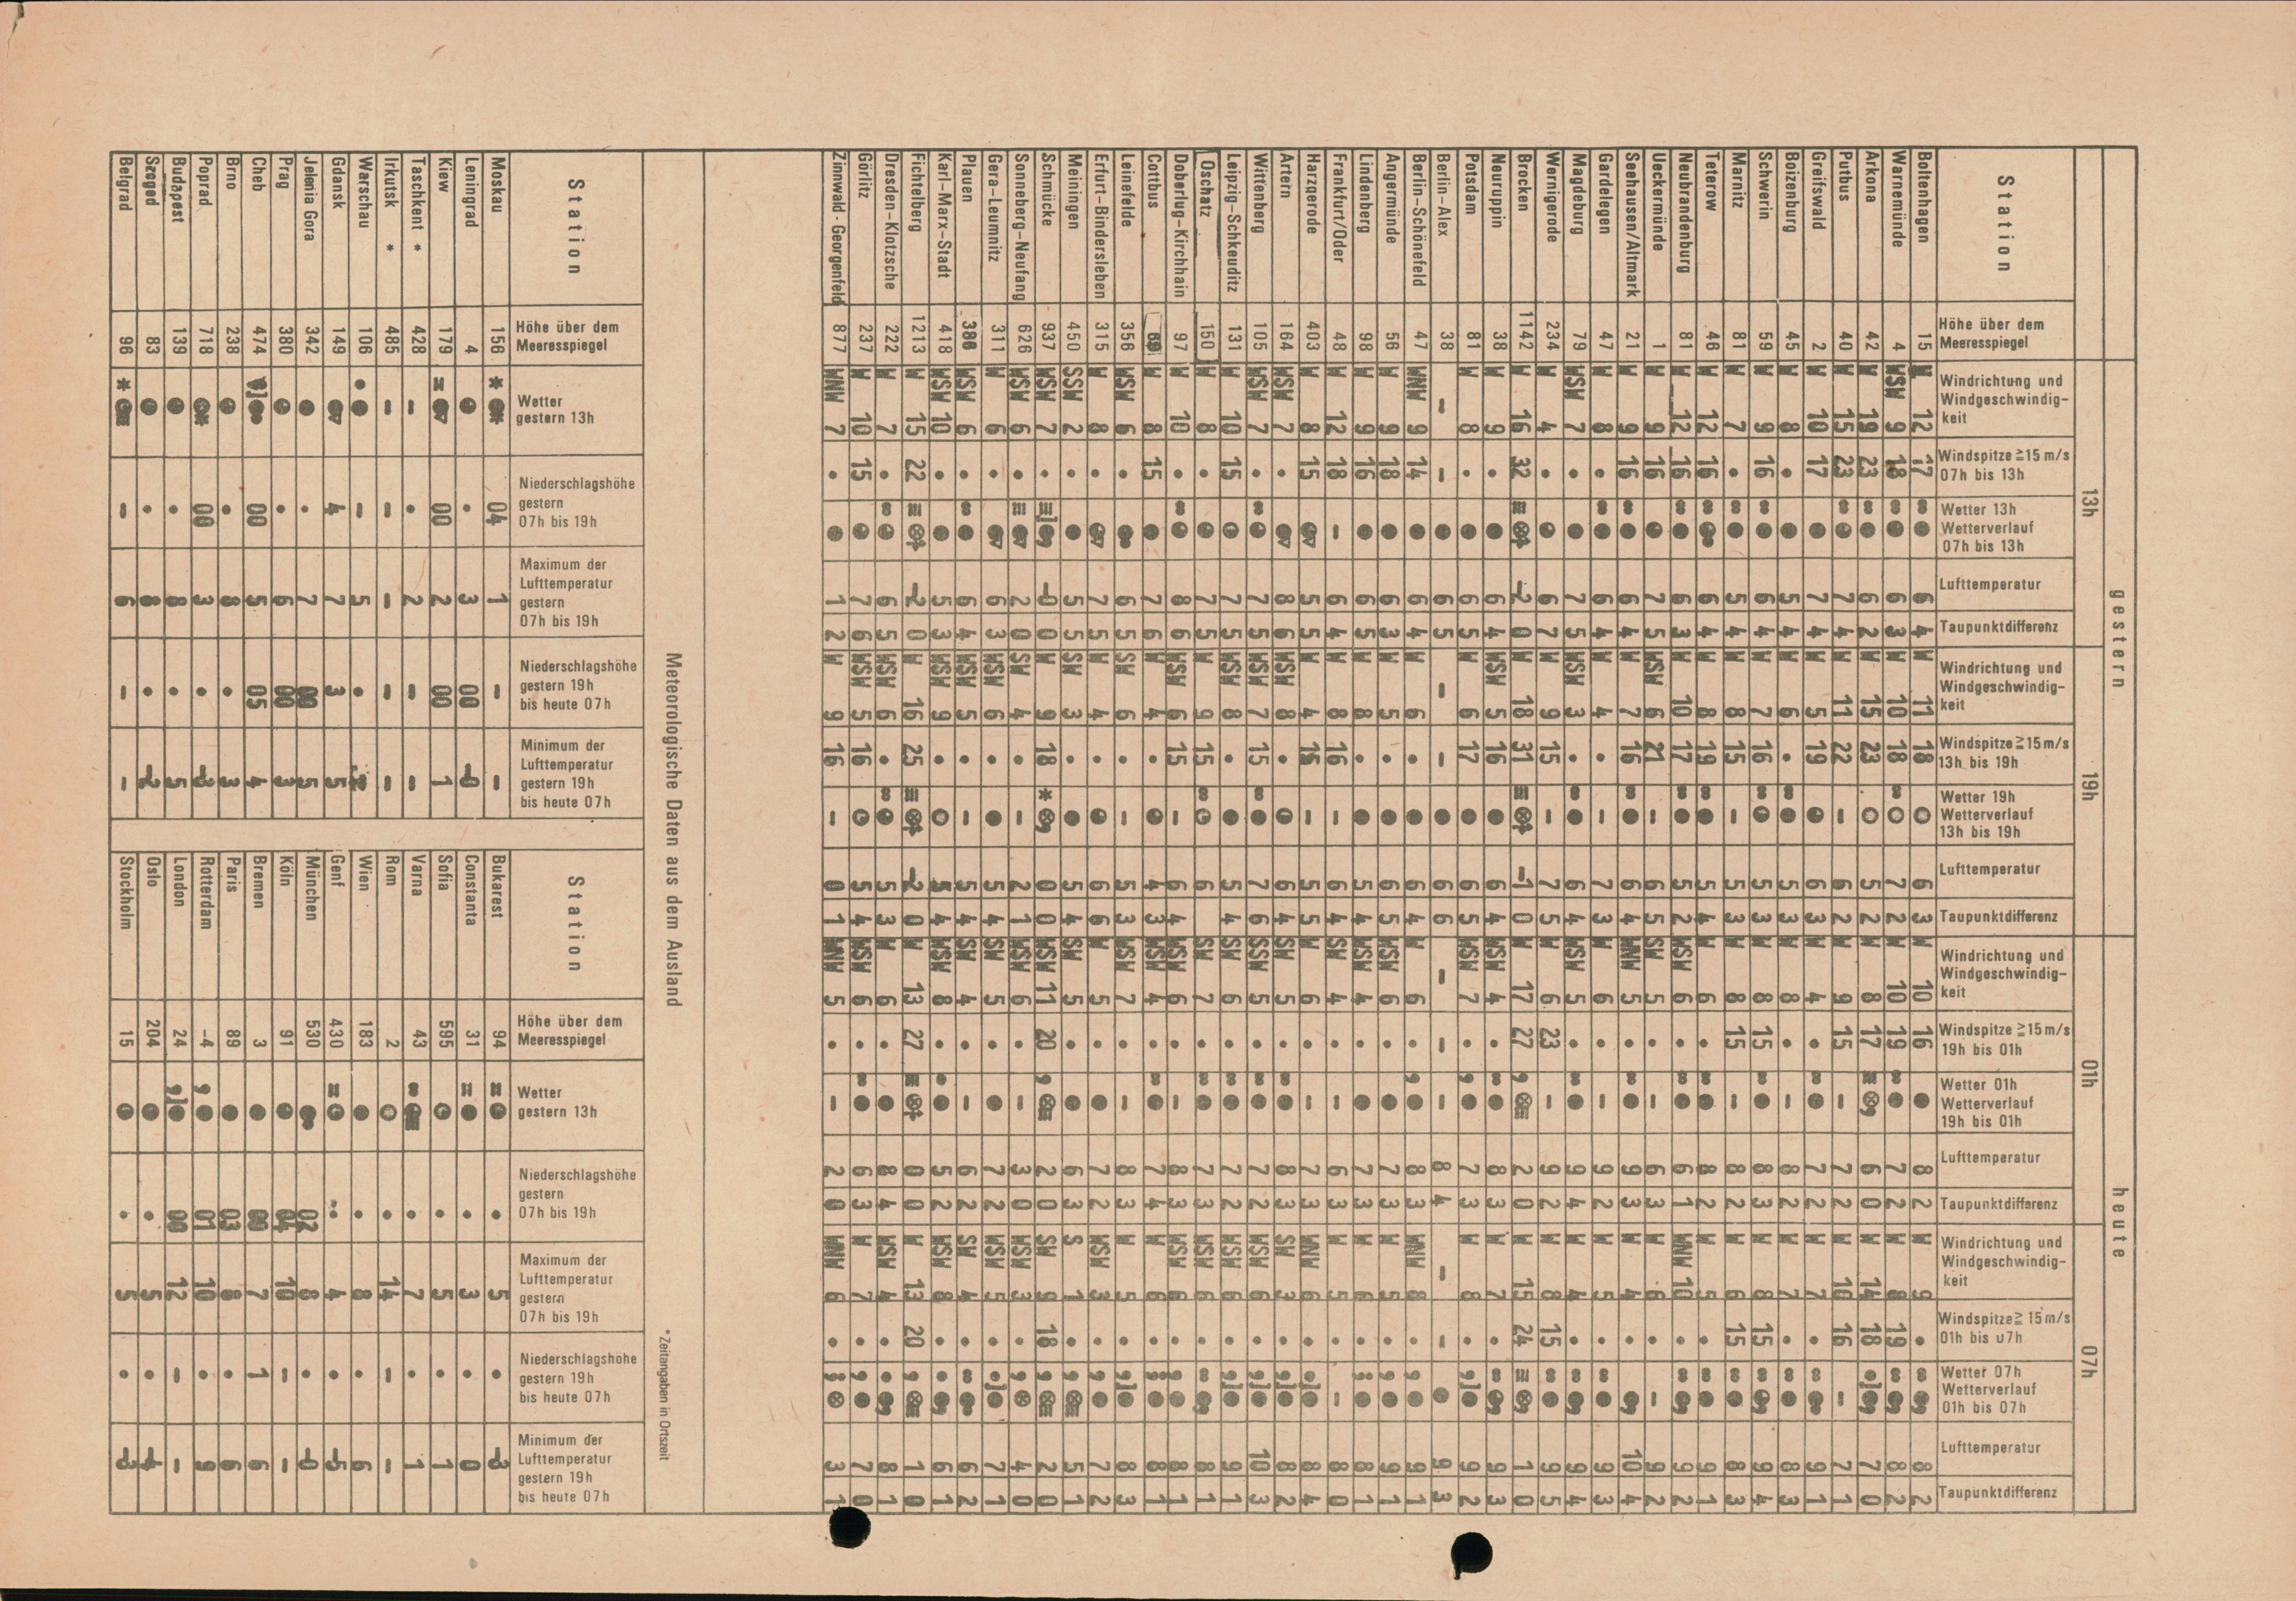 gestern heute
13h 19h 01h 07h
Station
Höhe über dem
Meeresspiegel
Windrichtung und
Windgeschwindig-
keit
Windspitze ≧ 15 m/s
07h bis 13h
Wetter 13h
Wetterverlauf
07h bis 13h
Lufttemperatur
Taupunktdifferenz
Windrichtung und
Windgeschwindig-
keit
Windspitze ≧ 15 m/s
13h bis 19h
Wetter 19h
Wetterverlauf
13h bis 19h
Lufttemperatur
Taupunktdifferenz
Windrichtung und
Windgeschwindig-
keit
Windspitze ≧ 15 m/s
19h bis 01h
Wetter 01h
Wetterverlauf
19h bis 01h
Lufttemperatur
Taupunktdifferenz
Windrichtung und
Windgeschwindig-
keit
Windspitze ≧ 15 m/s
01h bis 07h
Wetter 07h
Wetterverlauf
01h bis 07h
Lufttemperatur
Taupunktdifferenz
Boltenhagen 15 W 12 17 6 4 W 11 18 6 3 W 10 16 8 2 W 9 • 8 2
Warnemünde 4 WSW 9 18 6 3 W 10 18 7 2 W 10 19 7 2 W 8 19 8 2
Arkona 42 W 19 23 6 2 W 15 23 5 2 W 8 17 6 0 W 14 18 7 0
Putbus 40 W 15 23 7 4 W 11 22 6 2 W 9 15 7 2 W 10 16 7 1
Greifswald 2 W 10 17 7 4 W 5 19 6 3 W 4 • 7 2 W 7 • 9 1
Boizenburg 45 W 8 • 5 4 W 6 • 5 3 W 8 • 8 2 W 7 • 8 3
Schwerin 59 W 9 16 6 4 W 7 16 5 3 W 8 15 8 3 W 8 15 9 4
Marnitz 81 W 7 • 5 4 W 8 15 5 3 W 8 15 8 2 W 6 15 8 3
Teterow 46 W 12 16 6 4 W 8 19 5 4 W 6 • 8 2 W 5 • 9 1
Neubrandenburg 81 W 12 16 6 3 W 10 17 5 2 WSW 6 • 6 1 WNW 10 • 9 2
Ueckermünde 1 W 9 16 7 5 WSW 6 21 6 5 SW 5 • 6 3 W 6 • 9 2
Seehausen/Altmark 21 W 9 16 6 4 W 7 16 6 4 WNW 5 • 9 3 W 4 • 10 4
Gardelegen 47 W 8 • 6 4 W 4 • 7 3 W 6 • 9 2 W 5 • 9 3
Magdeburg 79 WSW 7 • 7 5 WSW 3 • 6 4 WSW 5 • 9 4 W 4 • 9 4
Wernigerode 234 W 4 • 6 7 W 9 15 – 7 5 W 6 23 – 9 2 W 8 15 9 5
Brocken 1142 W 16 32 -2 0 W 18 31 -1 0 W 17 27 2 0 W 15 24 1 0
Neuruppin 38 W 9 • 6 4 WSW 5 16 6 4 WSW 4 • 8 3 W 7 • 9 3
Potsdam 81 W 8 • 6 5 W 6 17 6 5 WSW 7 • 7 3 W 8 • 9 2
Berlin-Alex 38 – – 6 5 – – 6 6 – – – 8 4 – – 9 3
Berlin-Schönefeld 47 WNW 9 14 6 4 W 6 • 6 4 W 6 • 8 3 WNW 8 • 9 1
Angermünde 56 W 9 18 6 3 W 5 • 6 5 WSW 6 • 7 3 W 5 • 9 1
Lindenberg 98 W 9 16 6 5 W 8 • 5 4 WSW 4 • 7 3 W 6 • 8 1
Frankfurt/Oder 48 W 12 18 – 6 4 W 8 16 – 6 4 SW 4 • – 6 3 W 5 • – 8 0
Harzgerode 403 W 8 15 5 5 W 4 15 – 5 5 W 6 • – 7 3 WNW 6 • 8 4
Artern 164 WSW 7 • 8 6 WSW 8 • 6 4 SW 5 • 8 3 SW 3 • 8 2
Wittenberg 105 WSW 7 • 7 5 WSW 7 15 7 6 SSW 5 • 7 2 WSW 6 • 10 3
Leipzig-Schkeuditz 131 W 10 15 7 5 W 8 • 5 4 SW 6 • 7 2 WSW 6 • 9 1
Oschatz 150 W 8 • 7 5 W 9 15 6 SW 7 • 7 3 WSW 6 • 8 1
Doberlug-Kirchhain 97 W 10 • 8 6 WSW 6 15 – 6 4 WSW 6 • – 8 3 WSW 6 • 8 1
Cottbus 69 W 8 15 7 6 W 4 • 4 3 WSW 4 • 7 4 W 6 • 8 1
Leinefelde 356 WSW 6 • 6 5 SW 6 • – 5 3 WSW 7 • – 8 3 W 5 • 8 3
Erfurt-Bindersleben 315 W 8 • 7 5 W 4 • 6 6 W 5 • 7 2 WSW 3 • 7 2
Meiningen 450 SSW 2 • 5 5 SW 3 • 5 4 SW 5 • 6 3 S 1 • 5 1
Schmücke 937 WSW 7 • -0 0 W 9 18 0 0 WSW 11 20 2 0 SW 9 18 2 0
Sonneberg-Neufang 626 WSW 6 • 2 0 SW 4 • – 2 1 WSW 6 • – 3 0 WSW 3 • 4 0
Gera-Leumnitz 311 W 6 • 6 3 WSW 6 • 5 4 SW 5 • 7 2 WSW 5 • 7 1
Plauen 386 WSW 6 • 6 4 WSW 5 • – 5 4 SW 4 • – 6 2 SW 4 • 6 2
Karl-Marx-Stadt 418 WSW 10 • 5 3 WSW 9 • 5 4 WSW 8 • 5 2 WSW 8 • 6 1
Fichtelberg 1213 W 15 22 -2 0 W 16 25 -2 0 W 13 27 0 0 W 13 20 1 0
Dresden-Klotzsche 222 W 7 • 6 5 WSW 6 • 5 3 W 6 • 8 4 WSW 4 • 8 1
Görlitz 237 W 10 15 7 6 WSW 5 16 5 4 WSW 6 • 6 3 W 7 • 7 0
Zinnwald-Georgenfeld 877 WNW 7 • 1 2 W 9 16 – 0 1 WNW 5 • – 2 0 WNW 6 • 3 1
Meteorologische Daten aus dem Ausland
*Zeitangaben in Ortszeit
Station
Höhe über dem
Meeresspiegel
Wetter
gestern 13h
Niederschlagshöhe
gestern
07h bis 19h
Maximum der
Lufttemperatur
gestern
07h bis 19h
Niederschlagshöhe
gestern 19h
bis heute 07h
Minimum der
Lufttemperatur
gestern 19h
bis heute 07h
Moskau 156 04 1 – –
Leningrad 4 • 3 00 -0
Kiew 179 00 2 00 1
Taschkent * 428 – • 2 – –
Irkutsk * 485 – – – – –
Warschau 106 – 5 •
Gdansk 149 4 7 3 5
Jelenia Gora 342 • 7 00 5
Prag 380 • 6 00 3
Cheb 474 00 5 05 4
Brno 238 • 8 • 3
Poprad 718 00 3 • -3
Budapest 139 • 8 • 5
Szeged 83 • 8 • -2
Belgrad 96 – 6 – –
Station
Höhe über dem
Meeresspiegel
Wetter
gestern 13h
Niederschlagshöhe
gestern
07h bis 19h
Maximum der
Lufttemperatur
gestern
07h bis 19h
Niederschlagshöhe
gestern 19h
bis heute 07h
Minimum der
Lufttemperatur
gestern 19h
bis heute 07h
Bukarest 94 • 5 • -3
Constanta 31 • 3 • 0
Sofia 595 • 5 • 1
Varna 43 • 7 • 1
Rom 2 • 14 – –
Wien 183 • 8 • 6
Genf 430 4 • -5
München 530 02 8 • -0
Köln 91 04 10 – –
Bremen 3 00 7 1 6
Paris 89 03 8 • 6
Rotterdam -4 01 10 • 9
London 24 00 12 – –
Oslo 204 • 5 •
Stockholm 15 • 5 • -3